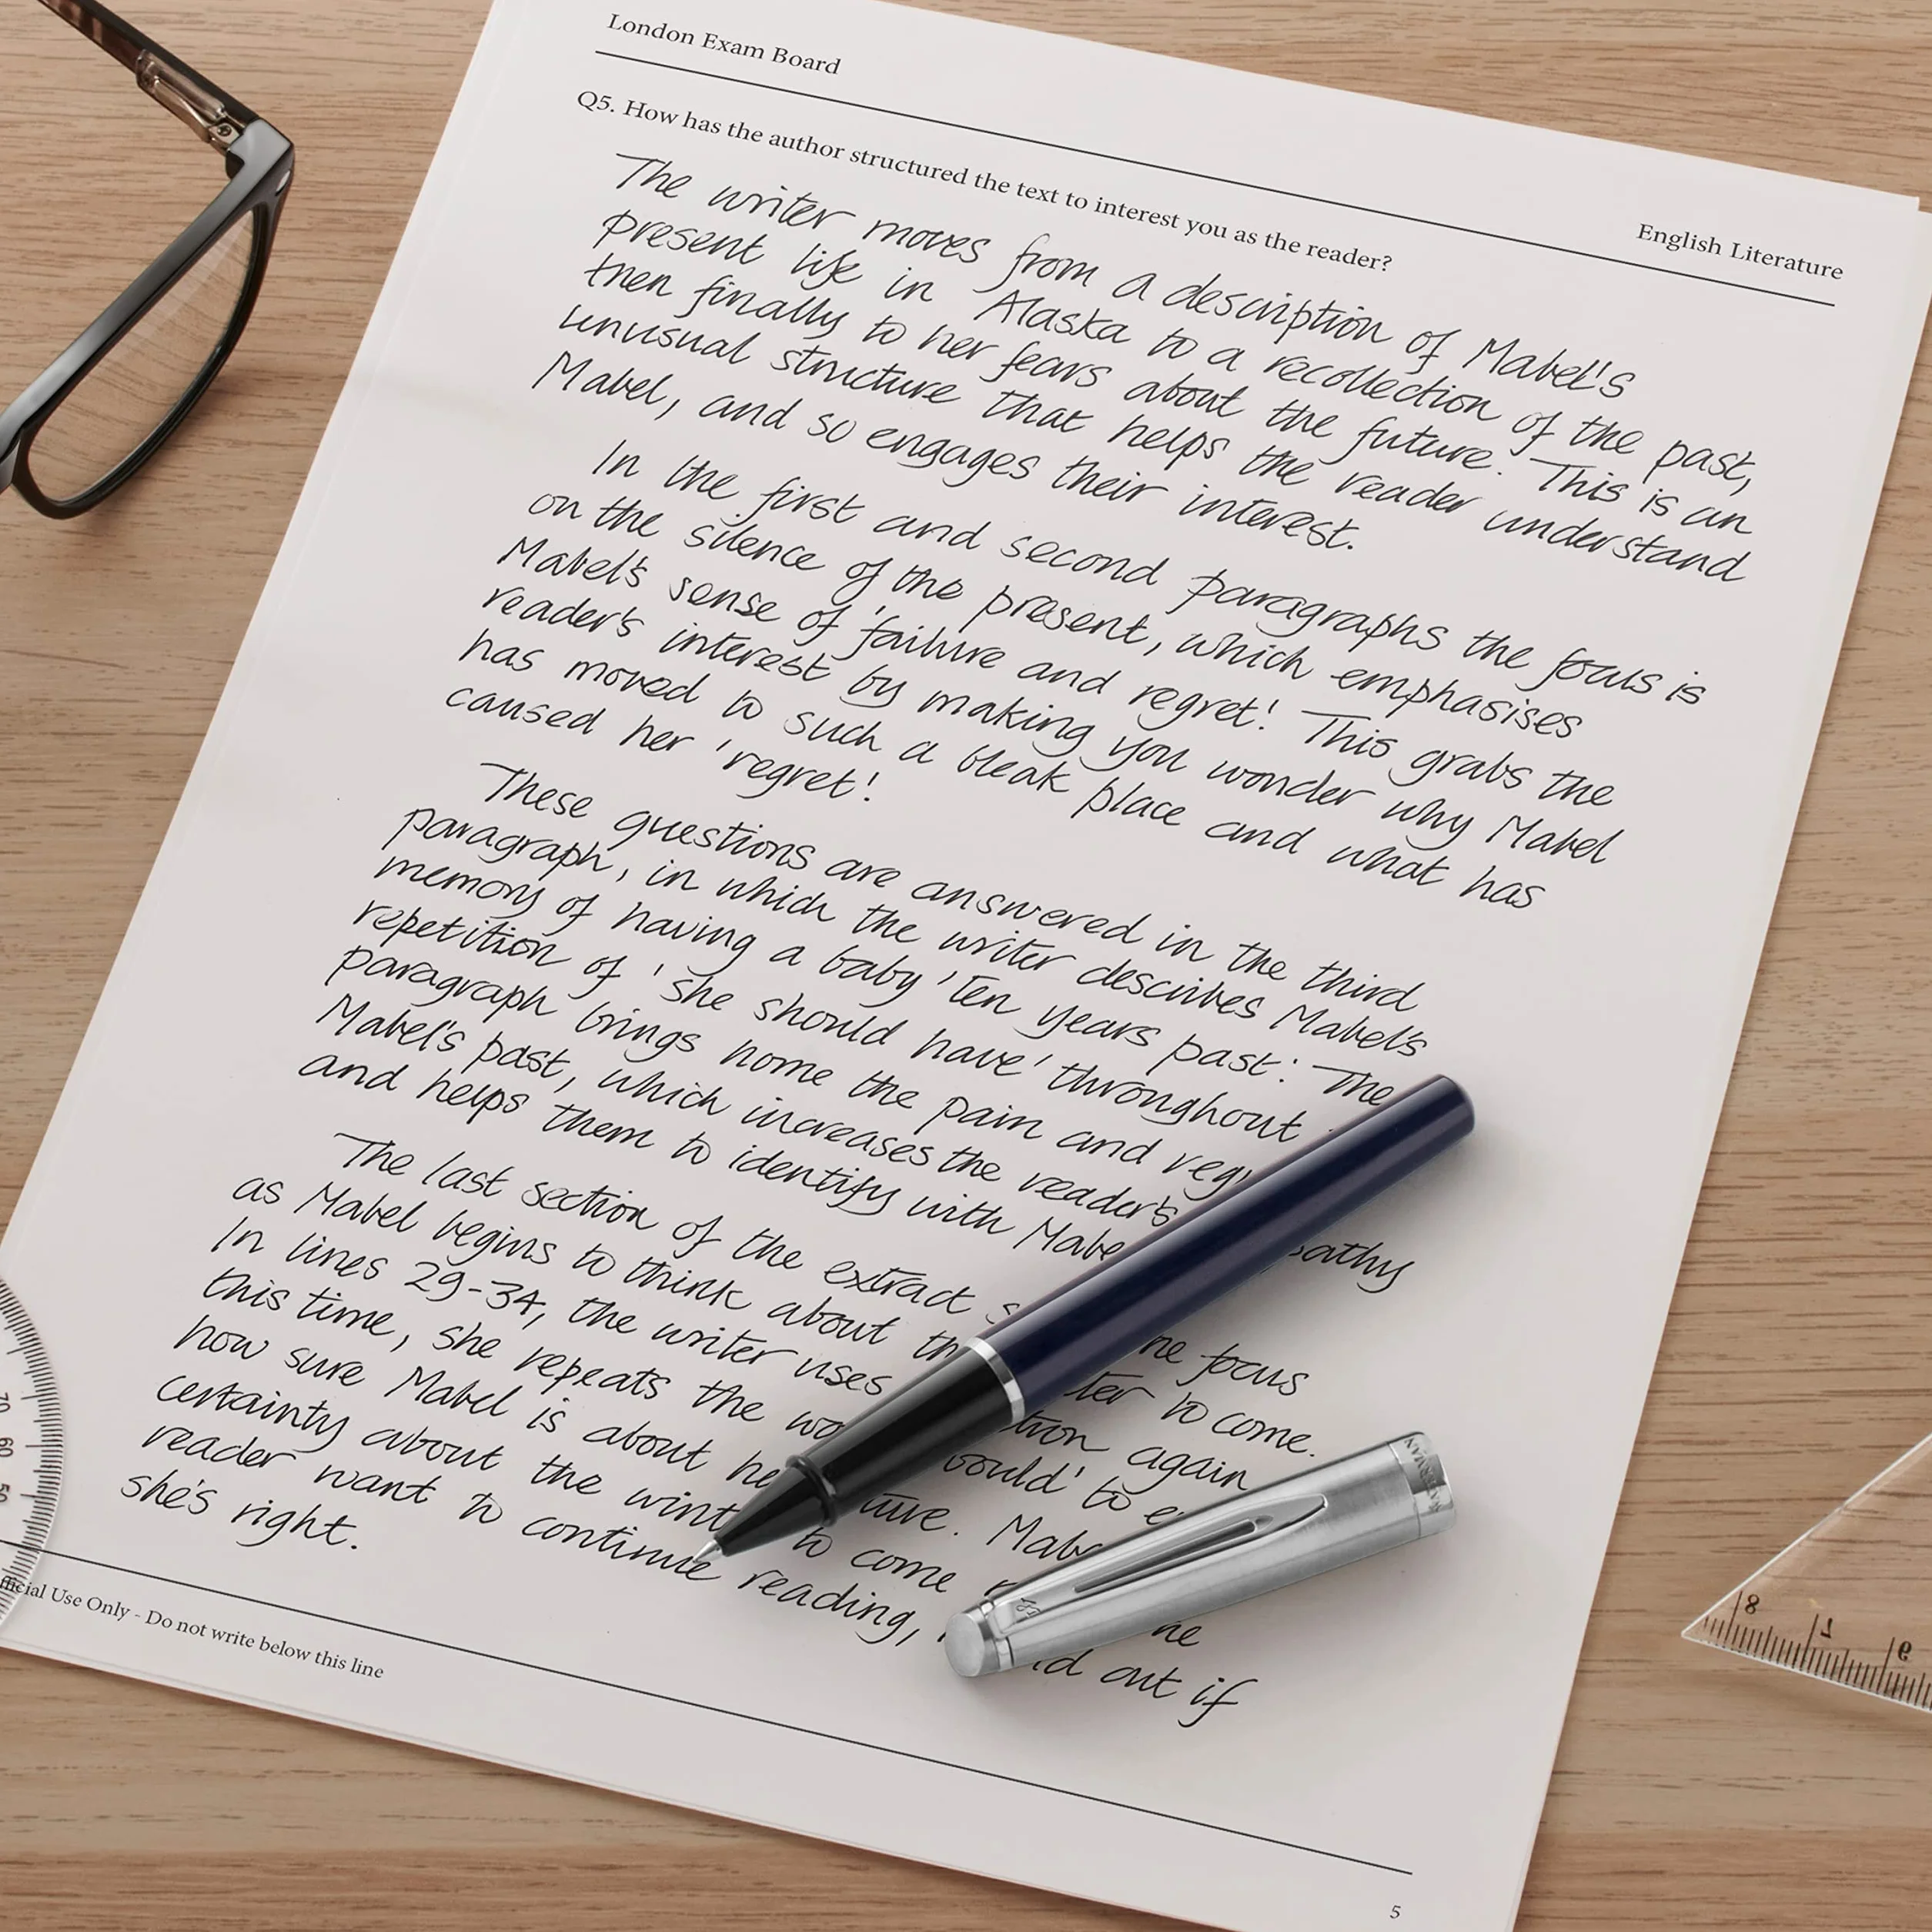 London Exam Board
English Literature
Q5. How has the author structured the text to interest you as the reader?
The writer moves from a description of Mabel's
present life in Alaska to a recollection of the past,
then finally to her fears about the future. This is an
unusual structure that helps the reader understand
Mabel, and so engages their interest.
In the first and second paragraphs the focus is
on the silence of the present, which emphasises
Mabel's sense of 'failure and regret'. This grabs the
reader's interest by making you wonder why Mabel
has moved to such a bleak place and what has
caused her 'regret'.
These questions are answered in the third
paragraph, in which the writer describes Mabel's
memory of having a baby 'ten years past'. The
repetition of 'she should have' throughout
paragraph brings home the pain and
Mabel's past, which increases the reader's
and helps them to identify with
The last section of the extract focus
as Mabel begins to think about to come.
In lines 29-34, the writer uses again
this time, she repeats the to
how sure Mabel is about
certainty about the to come
reader want to continue reading, out if
she's right.
Use Only - Do not write below this line
5
70
60
50
8
7
6
WATERMAN